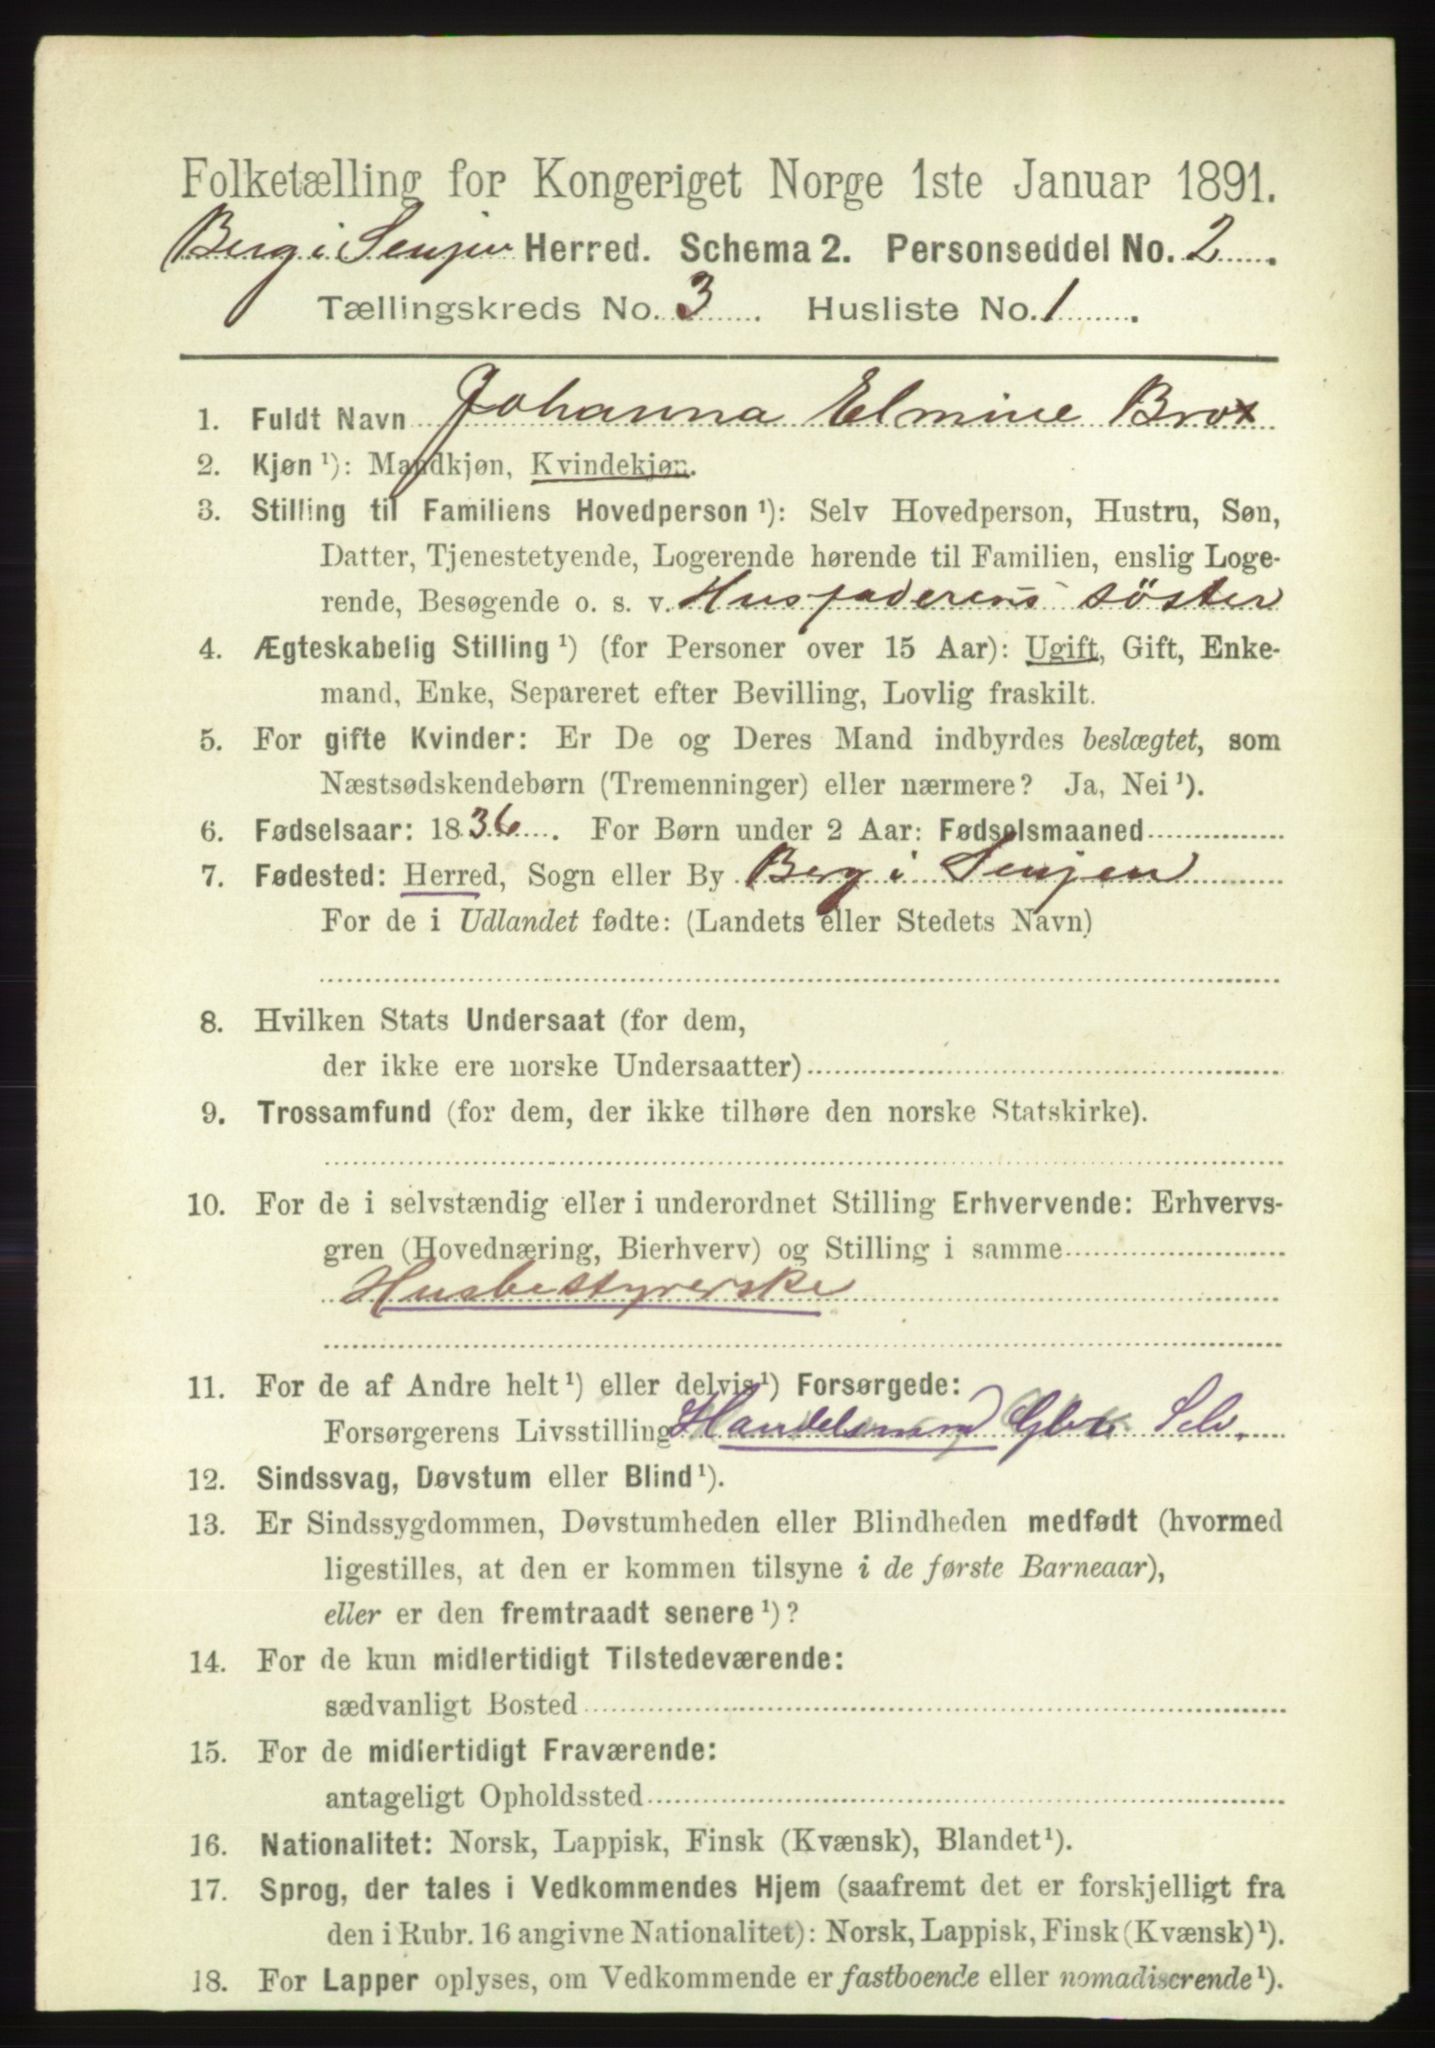 Folketælling for Kongeriget Norge 1ste Januar 1891.
Berg i Senjen Herred. Schema 2. Personseddel No. 2
Tællingskreds No. 3 Husliste No. 1
1. Fuldt Navn Johanna Elmine Brox
2. Kjøn ¹): Mandkjøn, Kvindekjøn.
3. Stilling til Familiens Hovedperson ¹): Selv Hovedperson, Hustru, Søn,
Datter, Tjenestetyende, Logerende hørende til Familien, enslig Loge-
rende, Besøgende o. s. v. Husfaderens söster
4. Ægteskabelig Stilling ¹) (for Personer over 15 Aar): Ugift, Gift, Enke-
mand, Enke, Separeret efter Bevilling, Lovlig fraskilt.
5. For gifte Kvinder: Er De og Deres Mand indbyrdes beslægtet, som
Næstsødskendebørn (Tremenninger) eller nærmere? Ja, Nei ¹).
6. Fødselsaar: 1836. For Børn under 2 Aar: Fødselsmaaned
7. Fødested: Herred, Sogn eller By Berg i Senjen
For de i Udlandet fødte: (Landets eller Stedets Navn)
8. Hvilken Stats Undersaat (for dem,
der ikke ere norske Undersaatter)
9. Trossamfund (for dem, der ikke tilhøre den norske Statskirke).
10. For de i selvstændig eller i underordnet Stilling Erhvervende: Erhvervs-
gren (Hovednæring, Bierhverv) og Stilling i samme
Husbestyrerske
11. For de af Andre helt ¹) eller delvis ¹) Forsørgede:
Forsørgerens Livsstilling Handelsmand Gbr. Selv.
12. Sindssvag, Døvstum eller Blind ¹).
13. Er Sindssygdommen, Døvstumheden eller Blindheden medfødt (hvormed
ligestilles, at den er kommen tilsyne i de første Barneaar),
eller er den fremtraadt senere ¹)?
14. For de kun midlertidigt Tilstedeværende:
sædvanligt Bosted
15. For de midlertidigt Fraværende:
antageligt Opholdssted
16. Nationalitet: Norsk, Lappisk, Finsk (Kvænsk), Blandet ¹).
17. Sprog, der tales i Vedkommendes Hjem (saafremt det er forskjelligt fra
den i Rubr. 16 angivne Nationalitet): Norsk, Lappisk, Finsk (Kvænsk) ¹).
18. For Lapper oplyses, om Vedkommende er fastboende eller nomadiserende ¹).